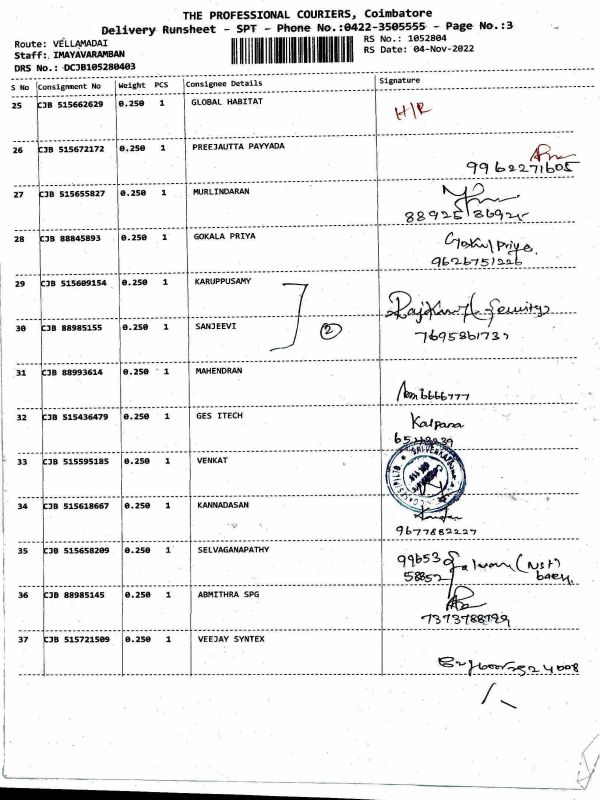 THE PROFESSIONAL COURIERS, Coimbatore
Delivery Runsheet - SPT - Phone No.:0422-3505555 - Page No.:3
Route: VELLAMADAI
RS No.: 1052804
Staff: IMAYAVARAMBAN
RS Date: 04-Nov-2022
DRS No.: DCJB105280403
S No Consignment No Weight PCS Consignee Details Signature
25 CJB 515662629 0.250 1 GLOBAL HABITAT H/R
26 CJB 515672172 0.250 1 PREEJAUTTA PAYYADA
9962271605
27 CJB 515655827 0.250 1 MURLINDARAN
88925 86925
28 CJB 88845893 0.250 1 GOKALA PRIYA Gokul Priya
9626751226
29 CJB 515609154 0.250 1 KARUPPUSAMY
30 CJB 88985155 0.250 1 SANJEEVI 2
31 CJB 88993614 0.250 1 MAHENDRAN
32 CJB 515436479 0.250 1 GES ITECH Kalpana
33 CJB 515595185 0.250 1 VENKAT
34 CJB 515618667 0.250 1 KANNADASAN
9677882227
35 CJB 515658209 0.250 1 SELVAGANAPATHY 99653
58852
36 CJB 88985145 0.250 1 ABMITHRA SPG
37 CJB 515721509 0.250 1 VEEJAY SYNTEX